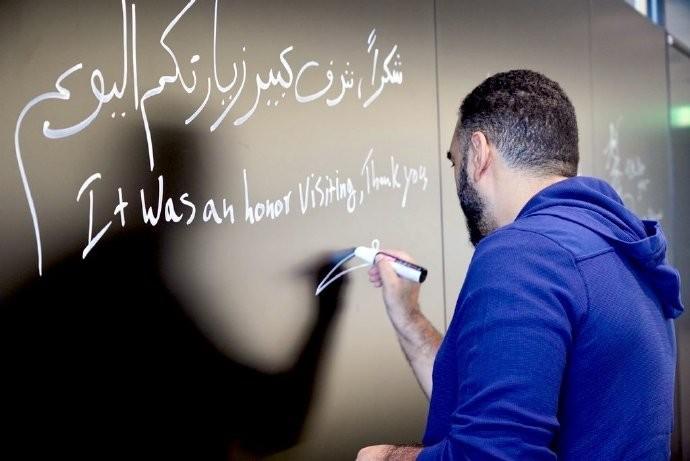 شكراً، شرف كبير زيارتكم اليوم
It was an honor visiting, Thank you